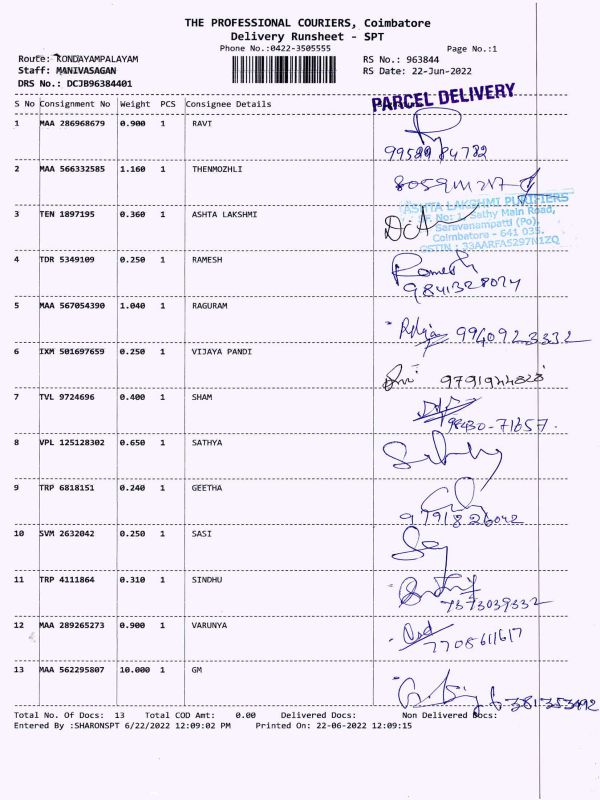 THE PROFESSIONAL COURIERS, Coimbatore
Delivery Runsheet - SPT
Phone No.:0422-3505555
Page No.:1
Route: KONDAYAMPALAYAM
RS No.: 963844
Staff: MANIVASAGAN
RS Date: 22-Jun-2022
DRS No.: DCJB96384401
PARCEL DELIVERY
S No Consignment No Weight PCS Consignee Details
1 MAA 286968679 0.900 1 RAVI
2 MAA 566332585 1.160 1 THENMOZHLI
ASHTA LAKSHMI PURIFIERS
3 TEN 1897195 0.360 1 ASHTA LAKSHMI
No: 1, Sathy Main Road,
Saravanampatti (Po),
Coimbatore - 641 035.
GSTIN : 33AARFA5297N1ZQ
4 TDR 5349109 0.250 1 RAMESH
Ramesh
9841328074
5 MAA 567054390 1.040 1 RAGURAM
9940923332
6 IXM 501697659 0.250 1 VIJAYA PANDI
9791944828
7 TVL 9724696 0.400 1 SHAM
98430-71657.
8 VPL 125128302 0.650 1 SATHYA
9 TRP 6818151 0.240 1 GEETHA
9791826042
10 SVM 2632042 0.250 1 SASI
11 TRP 4111864 0.310 1 SINDHU
7373039332
12 MAA 289265273 0.900 1 VARUNYA
7708611617
13 MAA 562295807 10.000 1 GM
6381353492
Total No. Of Docs: 13 Total COD Amt: 0.00 Delivered Docs: Non Delivered Docs:
Entered By :SHARONSPT 6/22/2022 12:09:02 PM Printed On: 22-06-2022 12:09:15